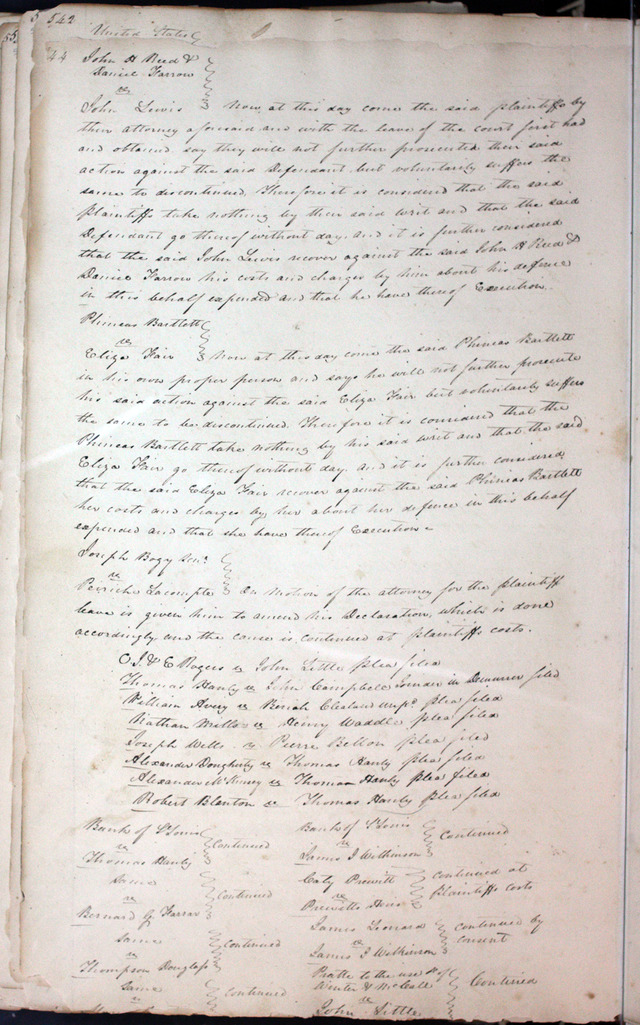 542
United States
44
John H Reed &
Daniel Farrow
vs
John Lewis Now at this day come the said plaintiffs by
their attorney aforesaid and with the leave of the court first had
and obtained say they will not further prosecute their said
action against the said Defendant but voluntarily suffers the
same to discontinued. Therefore it is considered that the said
plaintiffs take nothing by their said writ and that the said
Defendant go thereof without day. And it is further considered
that the said John Lewis recover against the said John H Reed &
Daniel Farrow his costs and charges by him about his defence
in this behalf expended and that he have thereof Execution.
Phineas Bartlett
vs
Eliza Fair Now at this day come the said Phineas Bartlett
in his own proper person and says he will not further prosecute
his said action against the said Eliza Fair but voluntarily suffers
the same to be discontinued. Therefore it is considered that the
Phineas Bartlett take nothing by his said writ and that the said
Eliza Fair go thereof without day. And it is further considered
that the said Eliza Fair recover against the said Phineas Bartlett
her costs and charges by her about her defence in this behalf
expended and that she have thereof Execution
Joseph Bogy Senr
vs
Lacompte On motion of the attorney for the plaintiff
leave is given him to amend his Declaration, which is done
accordingly and the cause is continued at plaintiffs costs.
& E Rogers vs John Little plea filed
Thomas Hanly vs John Campbell Joinder in Demurrer filed
William Avery vs Cleland plea filed
Nathan Mills vs Henry Waddle plea filed
Joseph Wells vs Pierre Bellon plea filed
Alexander Dougherty vs Thomas Hanly plea filed
Alexander McKinney vs Thomas Hanly plea filed
Robert Blanton vs Thomas Hanly plea filed
Bank of St Louis
vs continued
Thomas Hanly
Same
vs continued
Bernard G Farrar
Same
vs continued
Thompson Douglass
Same continued
Bank of St Louis
vs Continued
James J Wilkinson
Caty Prewitt
vs continued at
Plaintiffs costs
Prewitts Heirs
James Leonard
vs continued by
consent
James J Wilkinson
Pratte to the use of
Wenter & McCall Continued
vs
John Little